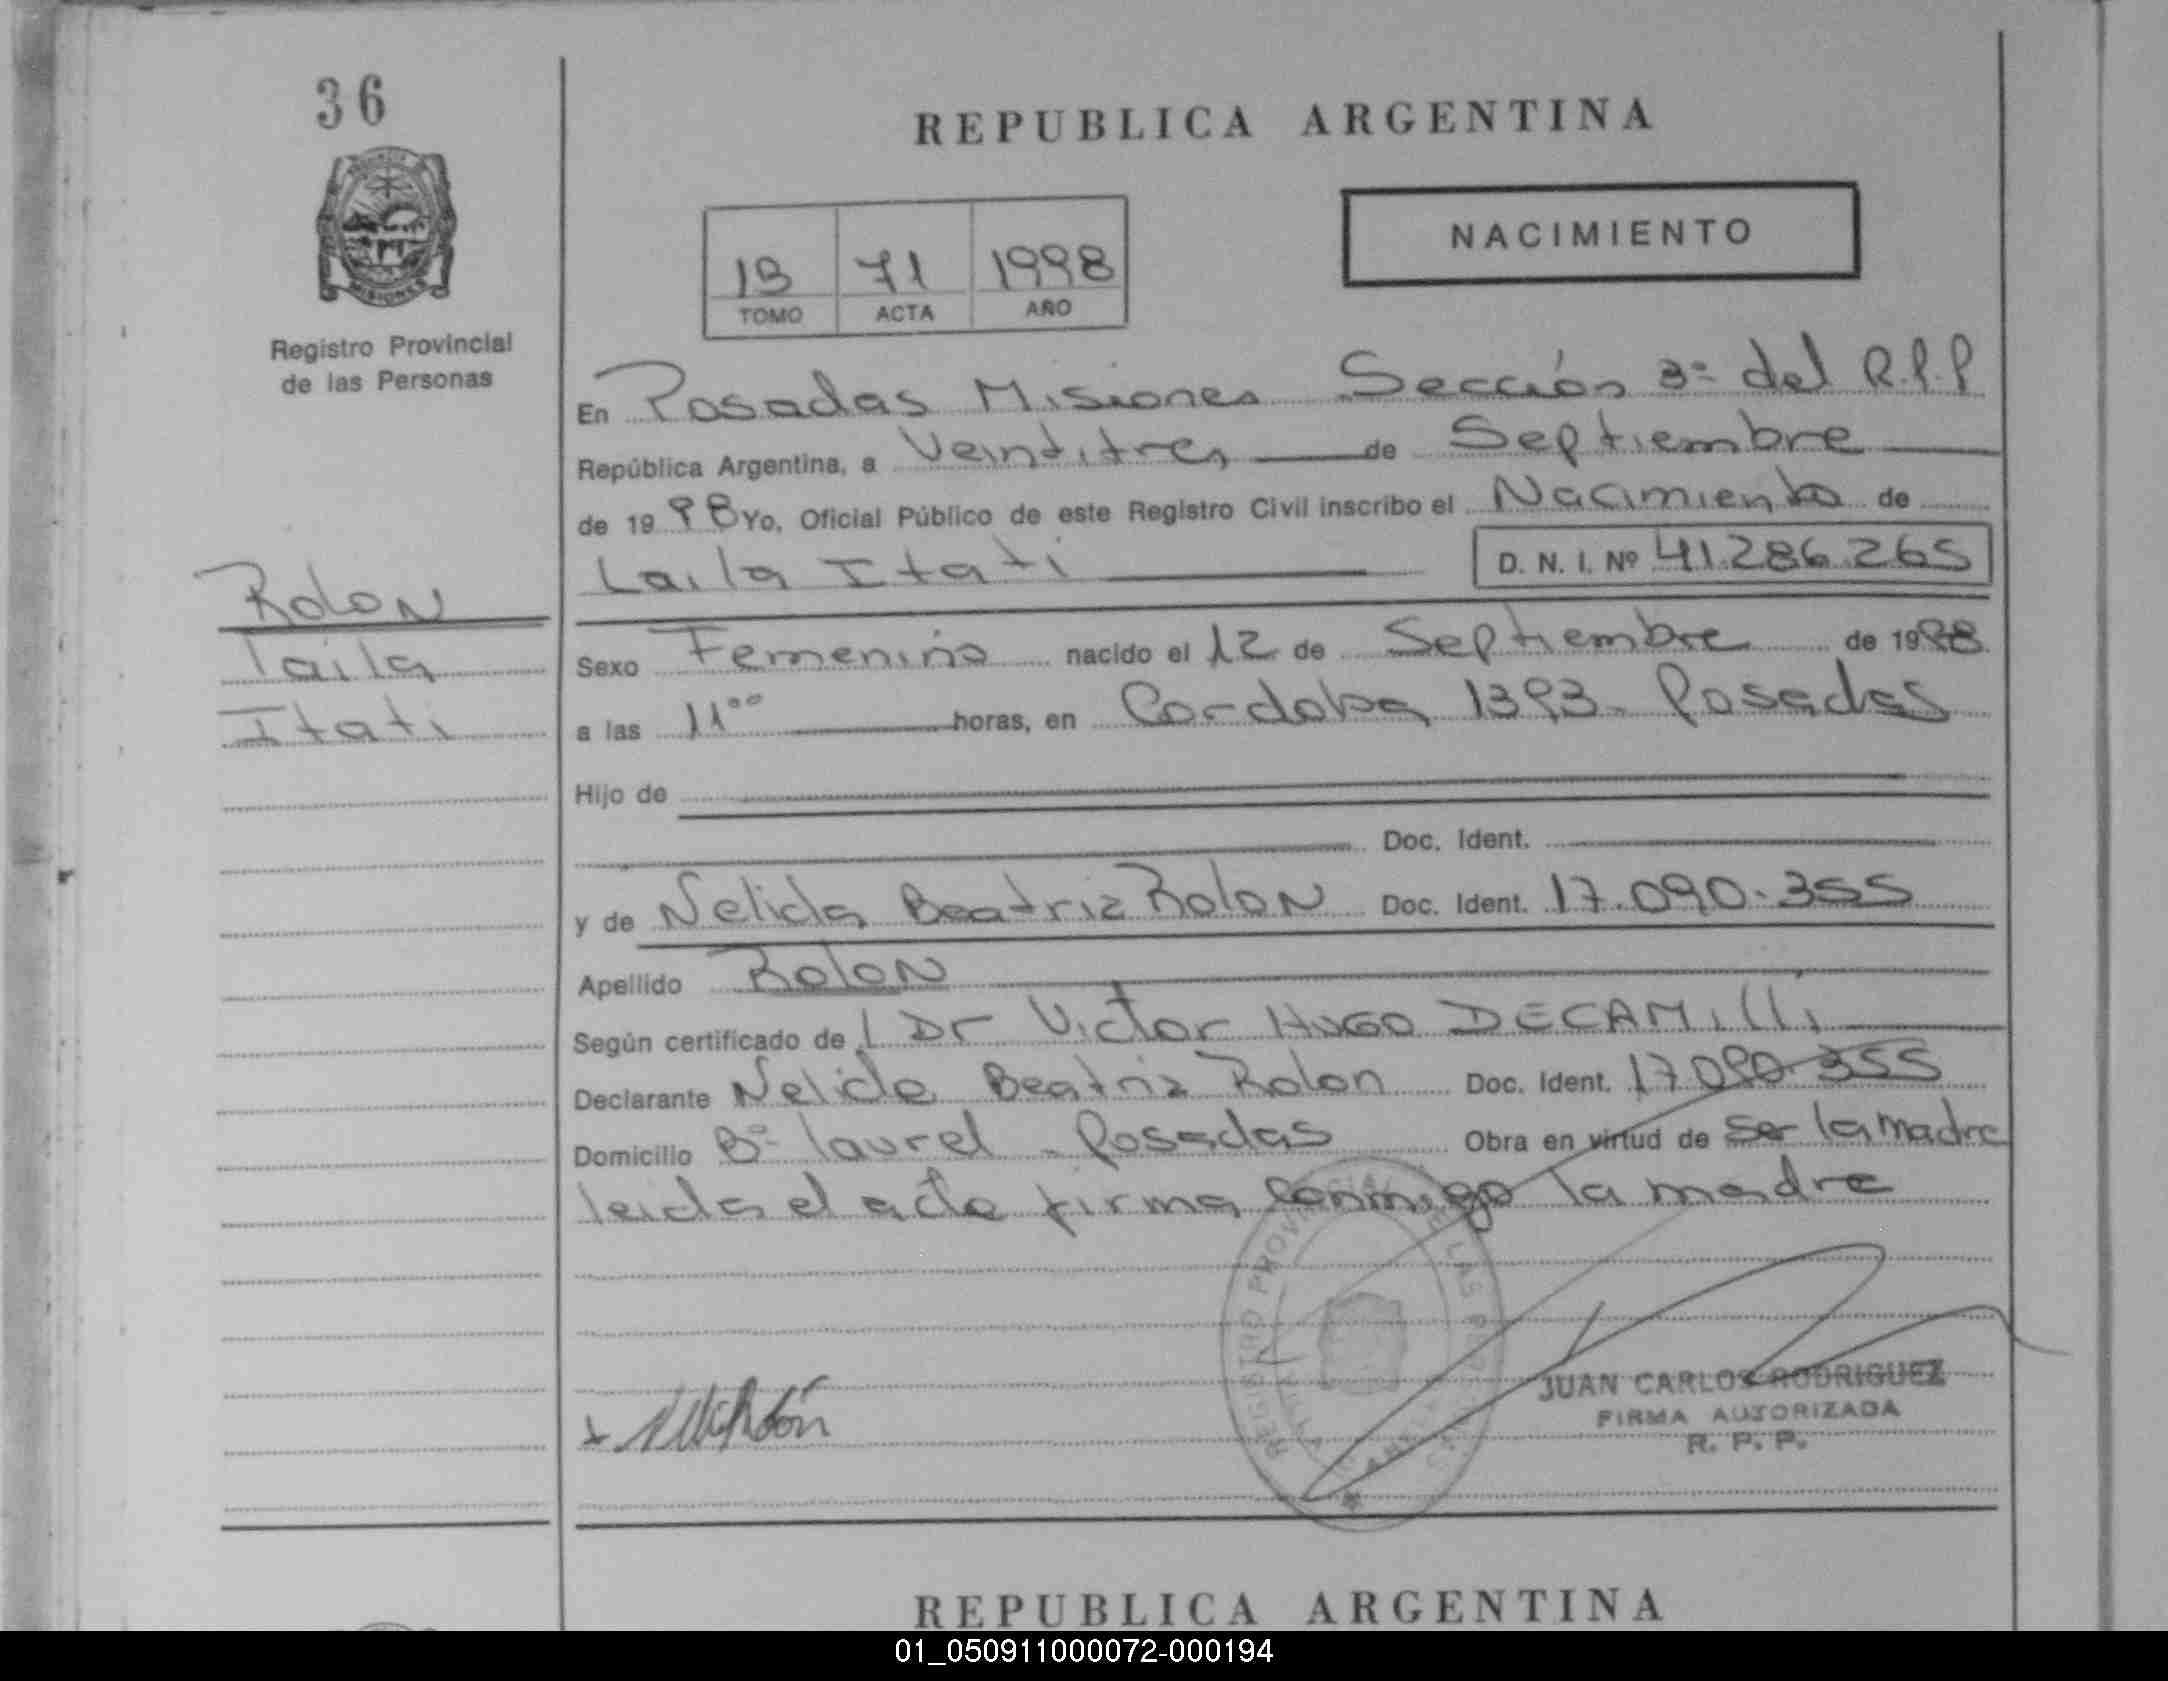 36
REPUBLICA ARGENTINA
MISIONES
Registro Provincial
de las Personas
1B 71 1998
TOMO ACTA AÑO
NACIMIENTO
En Posadas Misiones Sección 3ª del R.P.P
República Argentina, a Veintitres de Septiembre
de 1998 Yo, Oficial Público de este Registro Civil inscribo el Nacimiento de
Laila Itati D. N. I. Nº 41.286.265
Rolon
Laila
Itati
Sexo Femenino nacido el 12 de Septiembre de 1998
a las 11ºº horas, en Cordoba 1393 - Posadas
Hijo de
Doc. Ident.
y de Nelida Beatriz Rolon Doc. Ident. 17.090.355
Apellido Rolon
Según certificado de l Dr Victor Hugo DECAMilli
Declarante Nelida Beatriz Rolon Doc. Ident. 17.090.355
Domicilio Bº laurel - Posadas Obra en virtud de ser la madre
leida el acta firma conmigo la madre
REGISTRO PROVINCIAL DE LAS PERSONAS
JUAN CARLOS RODRIGUEZ
FIRMA AUTORIZADA
R. P. P.
REPUBLICA ARGENTINA
01_050911000072-000194